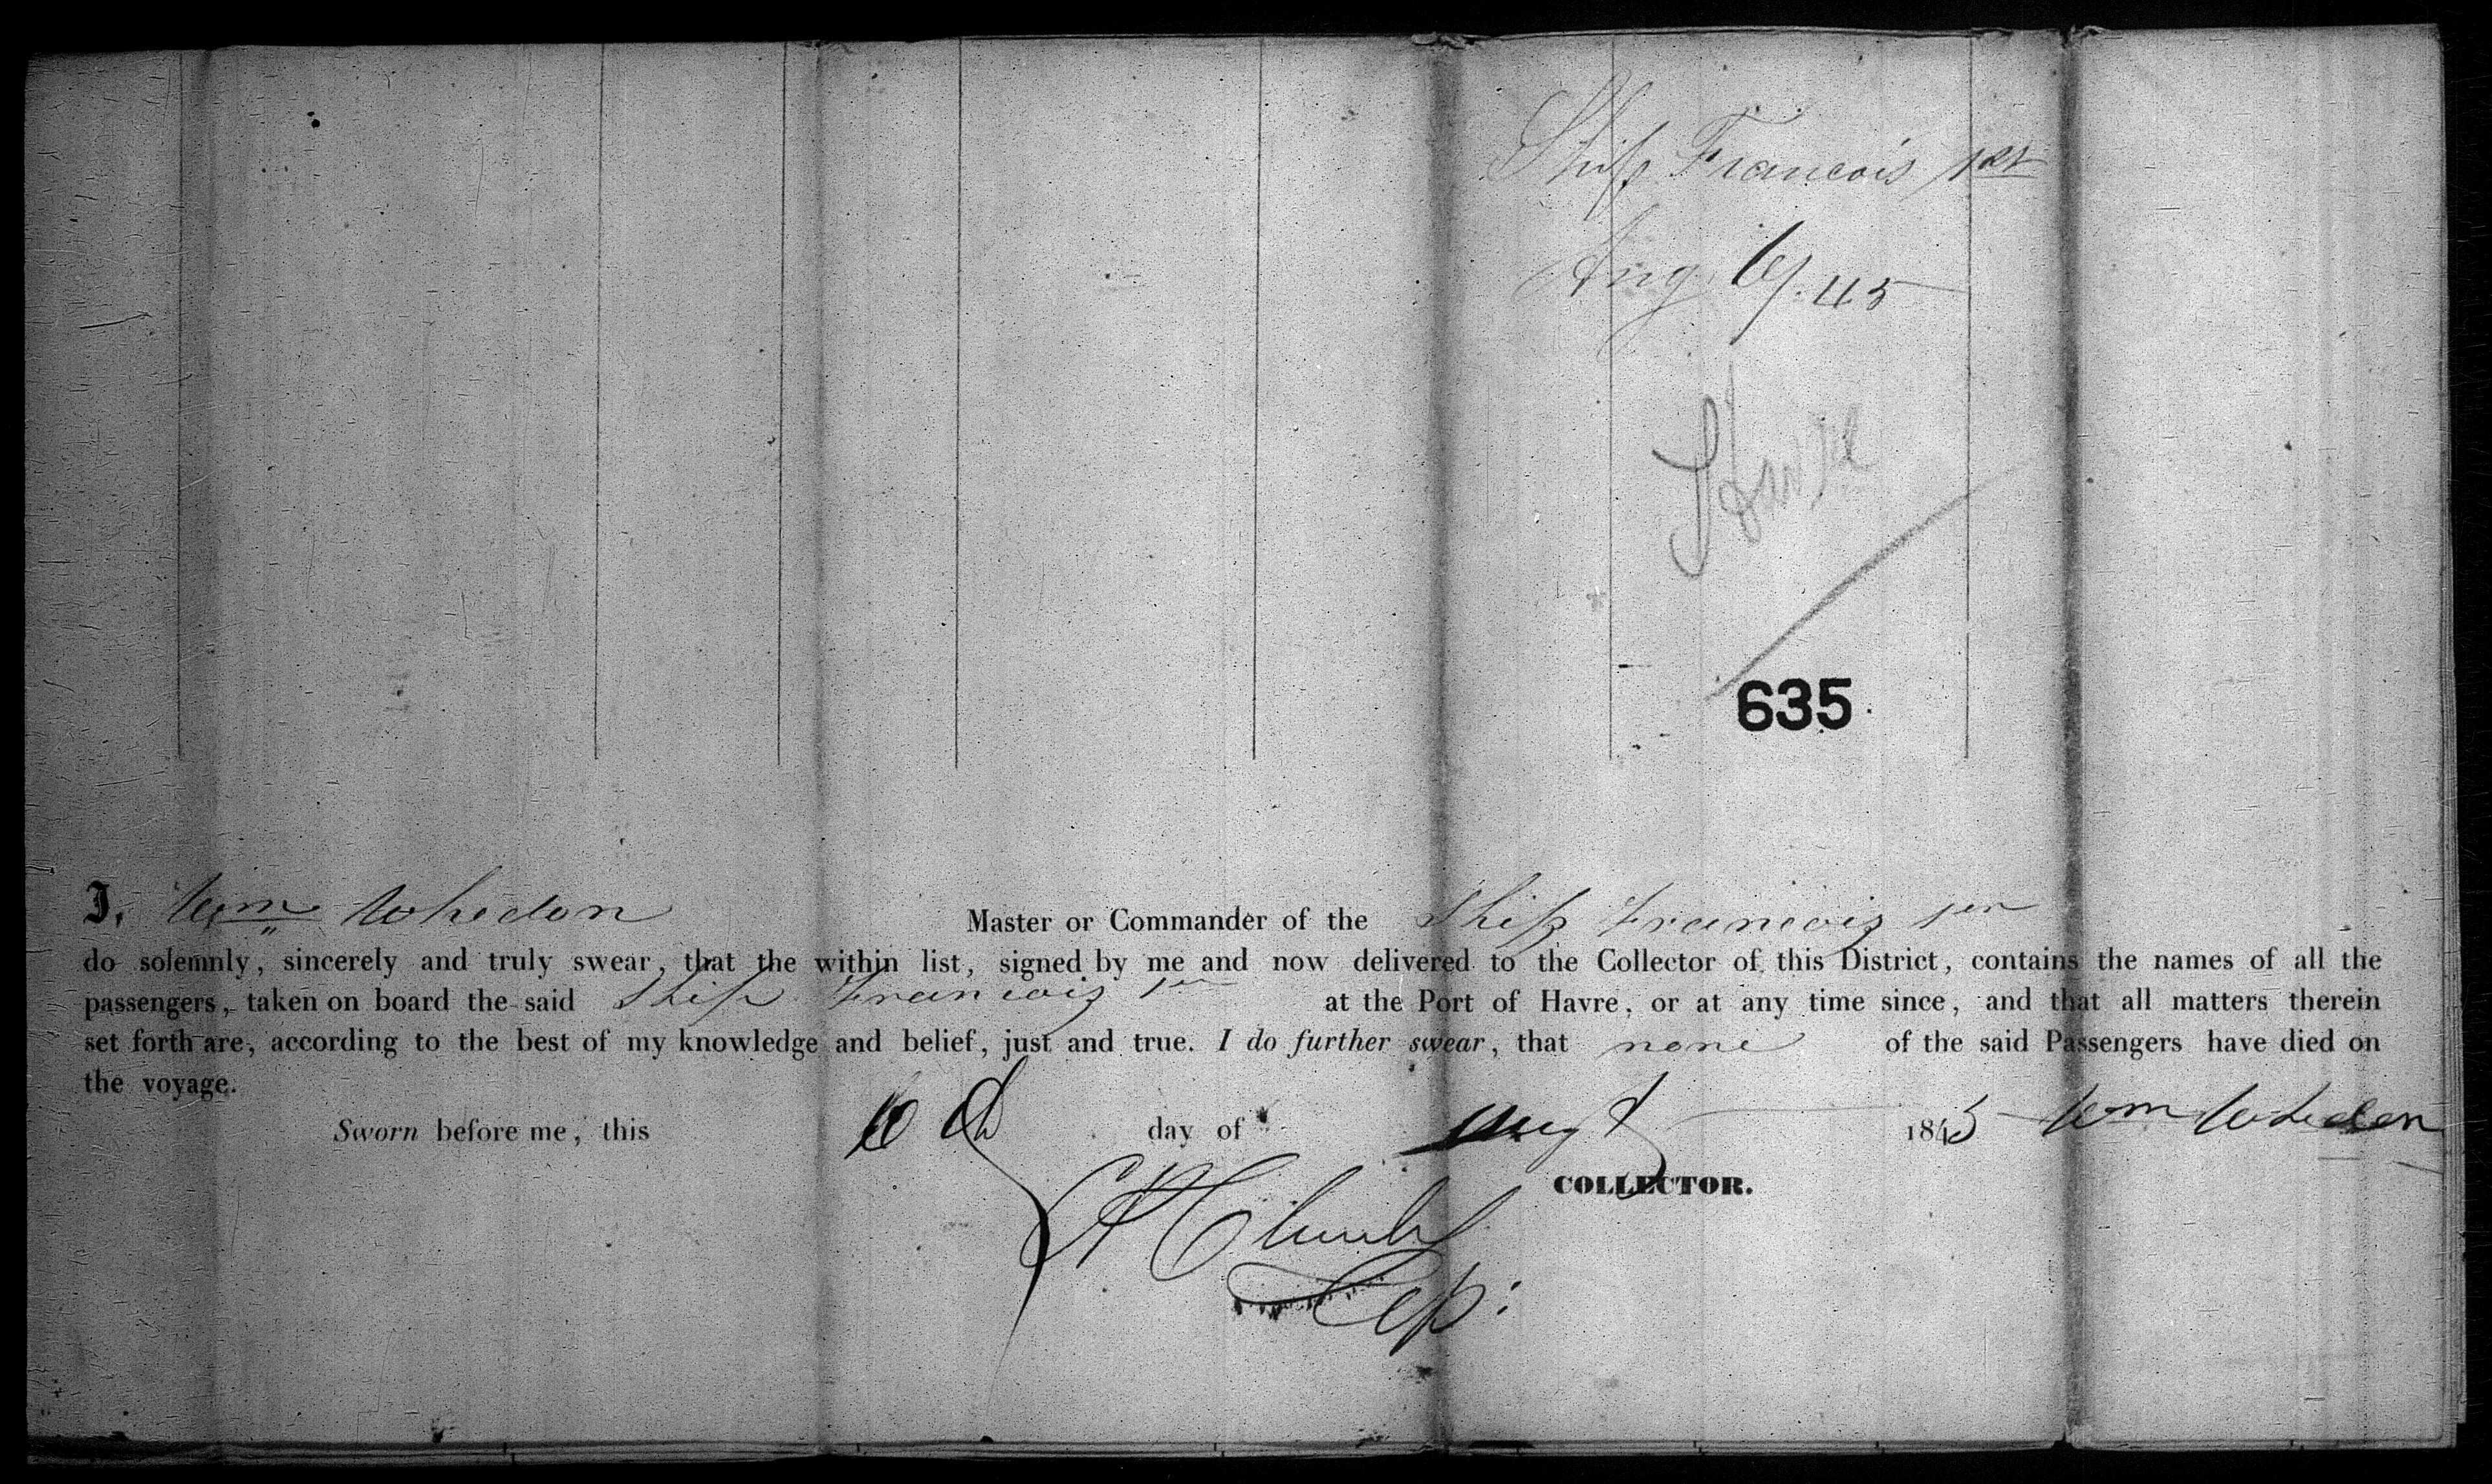 Ship Francois 1st
Aug 6/45
Havre
635
I, Wm Whedon Master or Commander of the Ship Francois 1er
do solemnly, sincerely and truly swear, that the within list, signed by me and now delivered to the Collector of this District, contains the names of all the
passengers, taken on board the said Ship Francois 1er at the Port of Havre, or at any time since, and that all matters therein
set forth are, according to the best of my knowledge and belief, just and true. I do further swear, that none of the said Passengers have died on
the voyage.
Sworn before me, this 6th day of Augt 1845 Wm Whedon
COLLECTOR.
Dep: